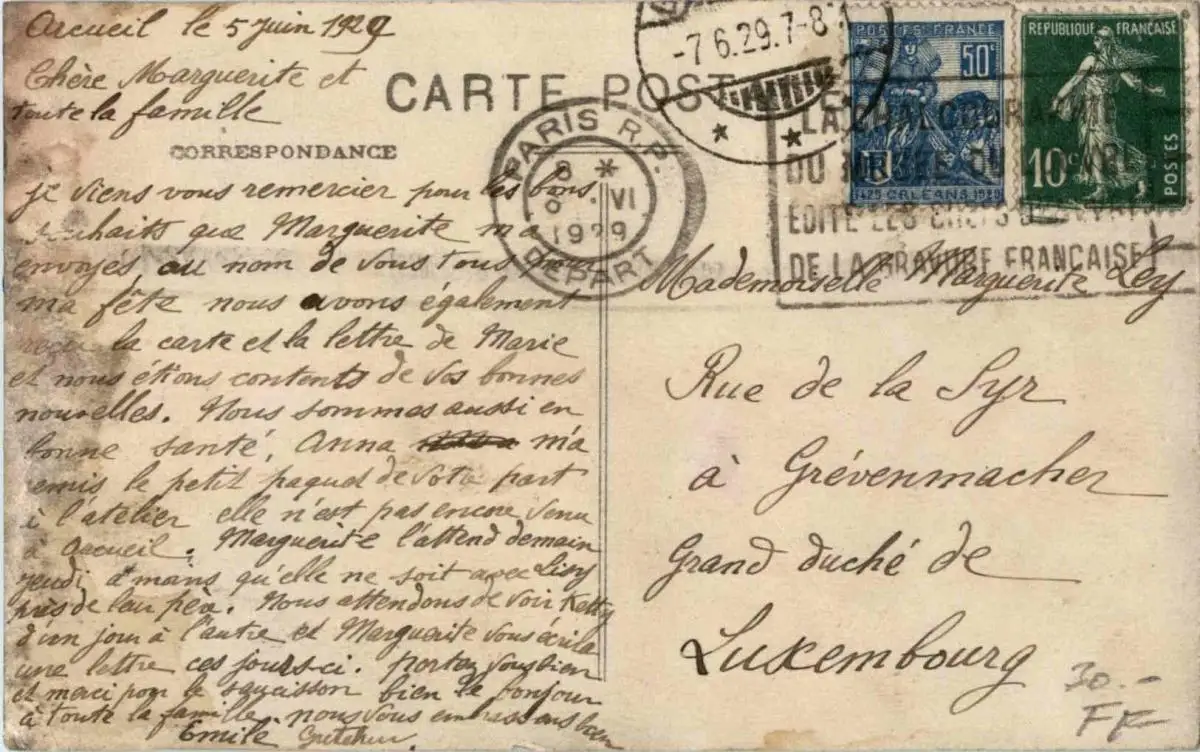 Arcueil le 5 Juin 1929
Chère Marguerite et
toute la famille
CARTE POST
CORRESPONDANCE
je viens vous remercier pour les bons
souhaits que Marguerite m'a
envoyés au nom de vous tous pour
ma fête nous avons également
reçu la carte et la lettre de Marie
et nous étions contents de vos bonnes
nouvelles. Nous sommes aussi en
bonne santé, Anna m'a
remis le petit paquet de votre part
à l'atelier elle n'est pas encore venu
à Arcueil. Marguerite l'attend demain
jeudi à mains qu'elle ne soit avec Lisy
près de leur père. Nous attendons de voir Ketty
d'un jour à l'autre et Marguerite vous écrira
une lettre ces jours-ci. portez vous bien
et merci pour le saucisson bien le bonjour
à toute la famille nous vous embrassons bien
Emile
-7.6.29.7-8
PARIS R.P.
8 *
VI
1929
DEPART
POSTES FRANCE
50c
1429 ORLEANS 1929
REPUBLIQUE FRANÇAISE
10c
POSTES
LA CHALCOGRAPHIE
DU MUSEE DU
EDITE LES CHEFS D'OEUVRE
DE LA GRAVURE FRANÇAISE
Mademoiselle Marguerite Ley
Rue de la Syr
à Grévenmacher
Grand duché de
Luxembourg
30.-
FF